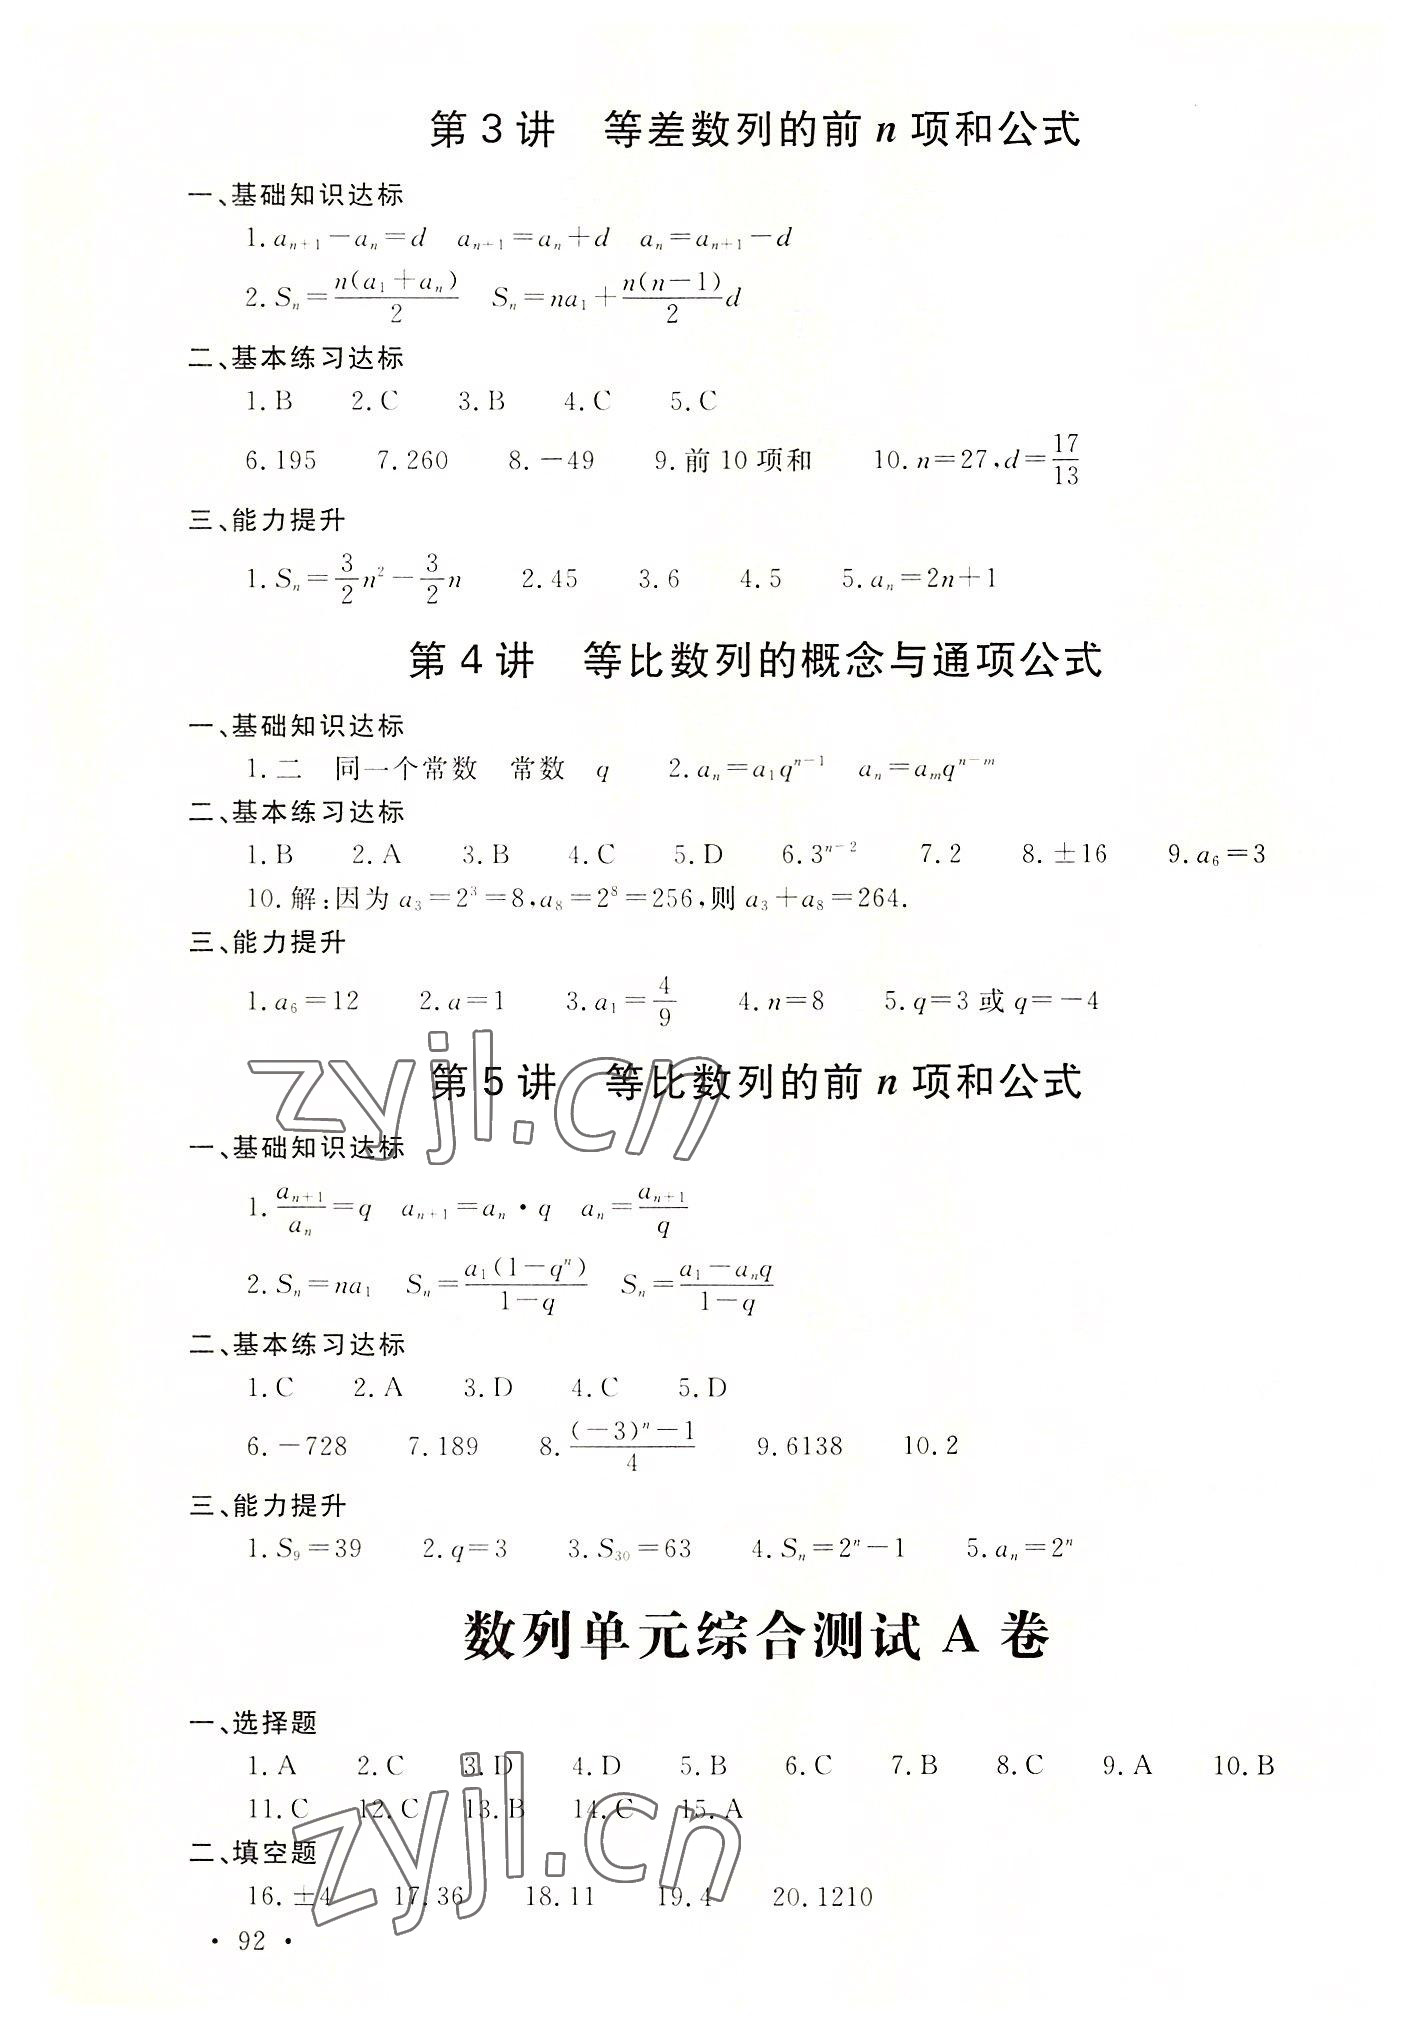 第3讲　等差数列的前 n 项和公式
一、基础知识达标
1. aₙ₊₁－aₙ＝d　aₙ₊₁＝aₙ＋d　aₙ＝aₙ₊₁－d
2. Sₙ＝n(a₁＋aₙ)/2　Sₙ＝na₁＋n(n－1)/2 d
二、基本练习达标
1. B　2. C　3. B　4. C　5. C
6. 195　7. 260　8. －49　9. 前10项和　10. n＝27，d＝17/13
三、能力提升
1. Sₙ＝3/2 n²－3/2 n　2. 45　3. 6　4. 5　5. aₙ＝2n＋1
第4讲　等比数列的概念与通项公式
一、基础知识达标
1. 二　同一个常数　常数　q　2. aₙ＝a₁qⁿ⁻¹　aₙ＝aₘqⁿ⁻ᵐ
二、基本练习达标
1. B　2. A　3. B　4. C　5. D　6. 3ⁿ⁻²　7. 2　8. ±16　9. a₆＝3
10. 解：因为 a₃＝2³＝8，a₈＝2⁸＝256，则 a₃＋a₈＝264.
三、能力提升
1. a₆＝12　2. a＝1　3. a₁＝4/9　4. n＝8　5. q＝3 或 q＝－4
第5讲　等比数列的前 n 项和公式
一、基础知识达标
1. aₙ₊₁/aₙ＝q　aₙ₊₁＝aₙ・q　aₙ＝aₙ₊₁/q
2. Sₙ＝na₁　Sₙ＝a₁(1－qⁿ)/(1－q)　Sₙ＝(a₁－aₙq)/(1－q)
二、基本练习达标
1. C　2. A　3. D　4. C　5. D
6. －728　7. 189　8. ((－3)ⁿ－1)/4　9. 6138　10. 2
三、能力提升
1. S₉＝39　2. q＝3　3. S₃₀＝63　4. Sₙ＝2ⁿ－1　5. aₙ＝2ⁿ
数列单元综合测试 A 卷
一、选择题
1. A　2. C　3. D　4. D　5. B　6. C　7. B　8. C　9. A　10. B
11. C　12. C　13. B　14. C　15. A
二、填空题
16. ±4　17. 36　18. 11　19. 4　20. 1210
・92・
zyjl.cn
zyjl.cn